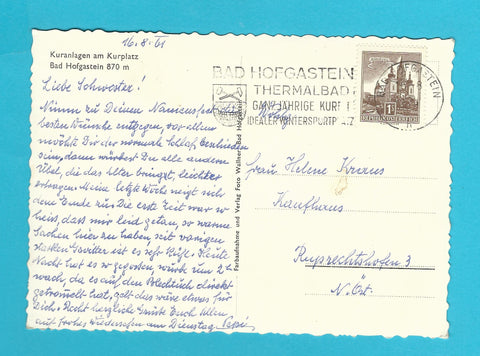 16.8.61
Kuranlagen am Kurplatz
Bad Hofgastein 870 m
Liebe Schwester!
Nimm zu Deinen Namensfest die
besten Wünsche entgegen, vor allem
möchte Dir der normale Schlaf beschieden
sein, dann würdest Du alle anderen
Übel, die das Alter bringt, leichter
ertragen. Meine letzte Woche neigt sich
dem Ende zu. Die erste Zeit war so
heiss, dass mir leid getan, so warme
Sachen hier zu haben, seit vorigen
starken Gewitter ist es sehr kühl. Heute
Nacht hat es so gegossen, wurde um 2h
wach, da es auf den direkt
getrommelt hat, das wäre etwas für
Dich. Recht herzliche Grüsse Euch Allen
auf frohes Wiedersehen am Dienstag
Farbaufnahme und Verlag Foto Wallner, Bad Hofgastein
BAD HOFGASTEIN
THERMALBAD
GANZJÄHRIGE KUR
IDEALER WINTERSPORTPLATZ
REPUBLIK ÖSTERREICH
Frau Helene Kraus
Kaufhaus
Ruprechtshofen 3
N.Öst.